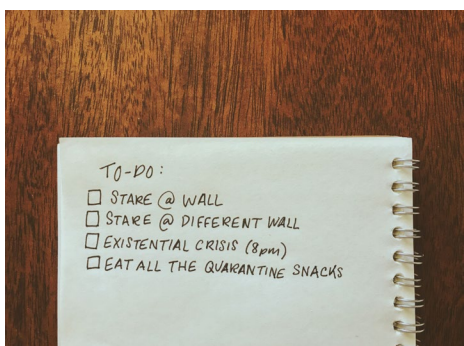 TO-DO:
☐ STARE @ WALL
☐ STARE @ DIFFERENT WALL
☐ EXISTENTIAL CRISIS (8pm)
☐ EAT ALL THE QUARANTINE SNACKS